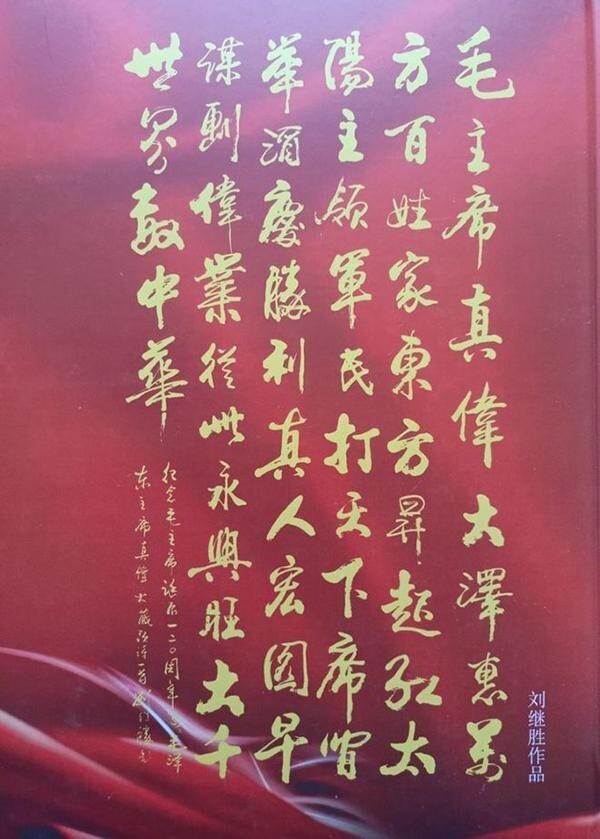 毛主席真偉大澤惠萬
方百姓家東方昇起紅太
陽主領軍民打天下席間
舉酒慶勝利真人宏圖早
謀劃偉業從此永興旺大千
世界敬中華
纪念毛主席诞辰一二〇周年毛泽
东主席真偉大藏头诗一首刘继胜书
刘继胜作品